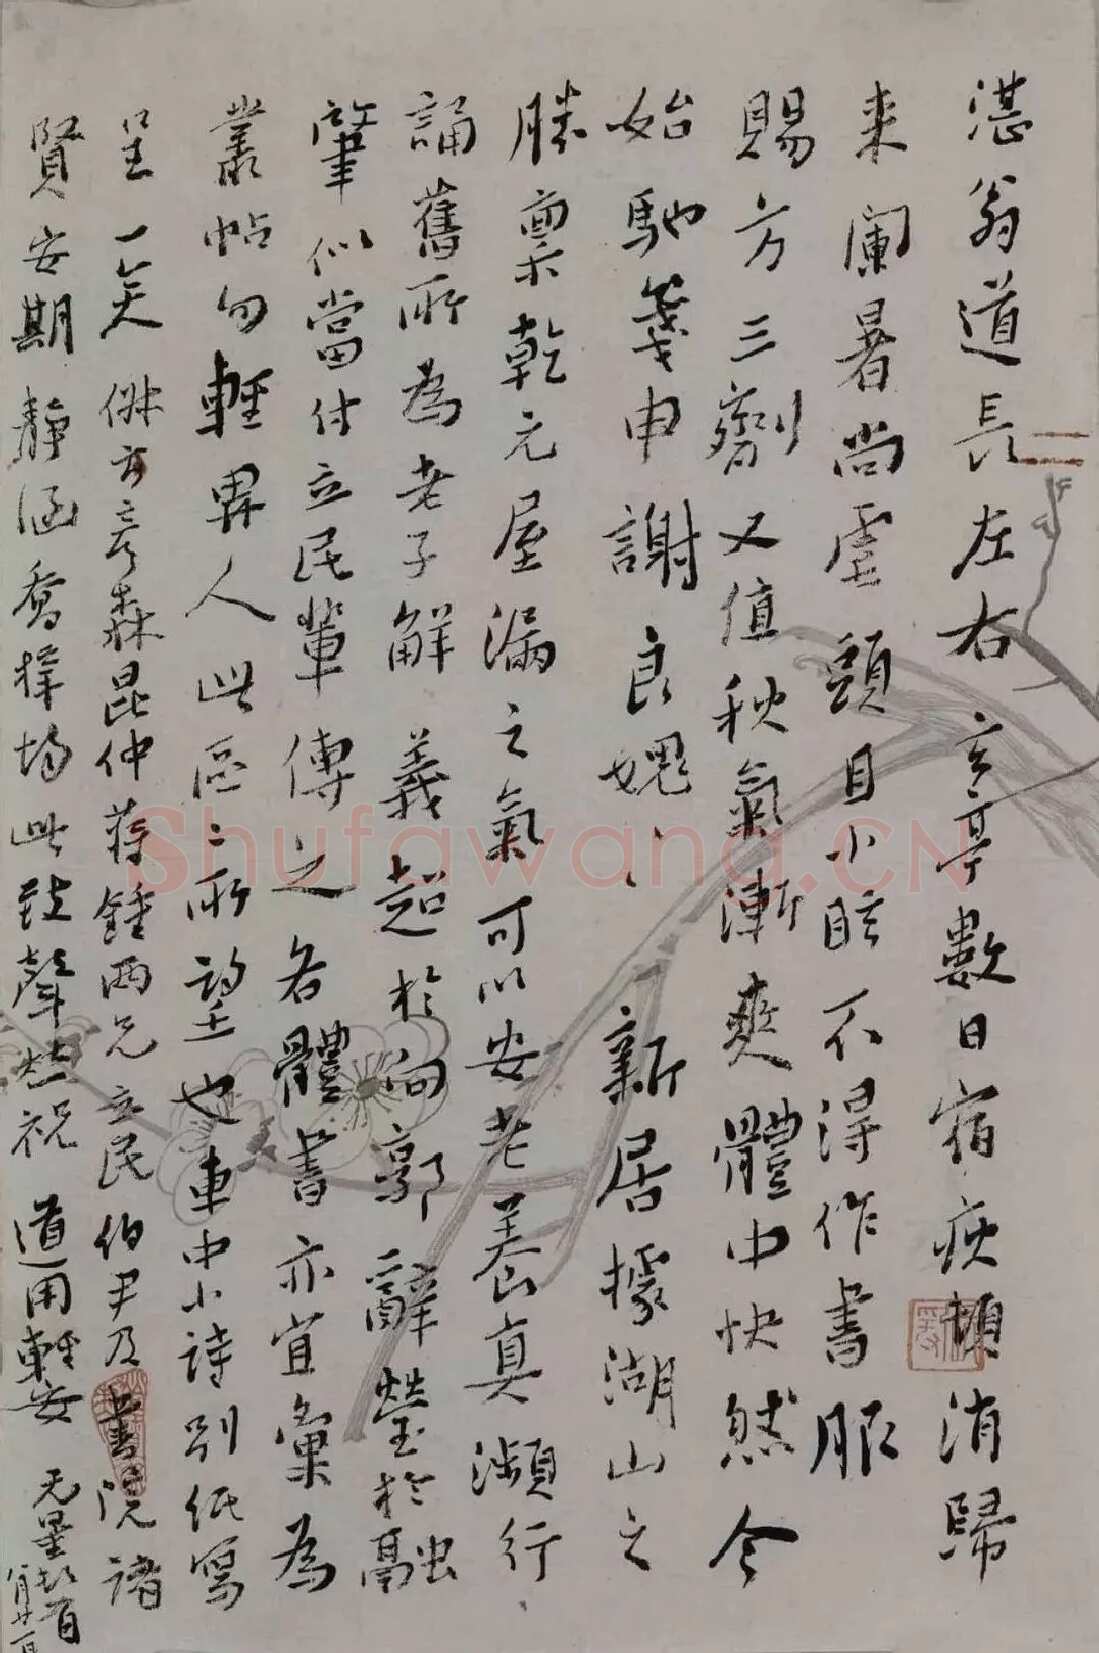 湛翁道長左右玄亭數日宿疾頓消歸
来闌暑尚虐頭目小眩不得作書服
賜方三劑又值秋氣漸爽體中快然令
始馳箋申謝良媿〻新居據湖山之
勝稟乾元屋漏之氣可以安老養真瀕行
誦舊所為老子解義超於向郭辭瑩於融
肇似當付立民輩傳之各體書亦宜彙為
叢帖勿輕畀人此區〻所望也車中小詩別紙寫
呈一笑 彥森昆仲蔣鍾兩兄立民伯尹乃書院諸
賢安期靜涵喬擇均此致聲並祝道用輕安 无量頓首
Shufawang.CN